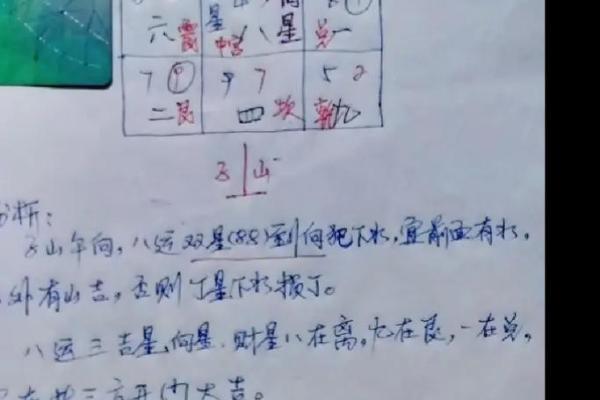 星 星
六震 中宫八 兑一
7 9 9 7 5 2
二艮 四坎 乾九
子山
分析:
子山午向,八运双星(88)到向犯下水,宜前面有水,
外有山吉,否则丁星下水损丁。
八运三吉星,向星、财星八在离,九在艮,一在兑,
在此三方开门大吉。